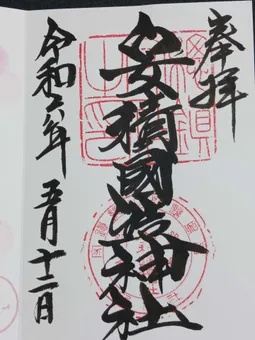 奉拝
安積國造神社
令和六年五月十二日